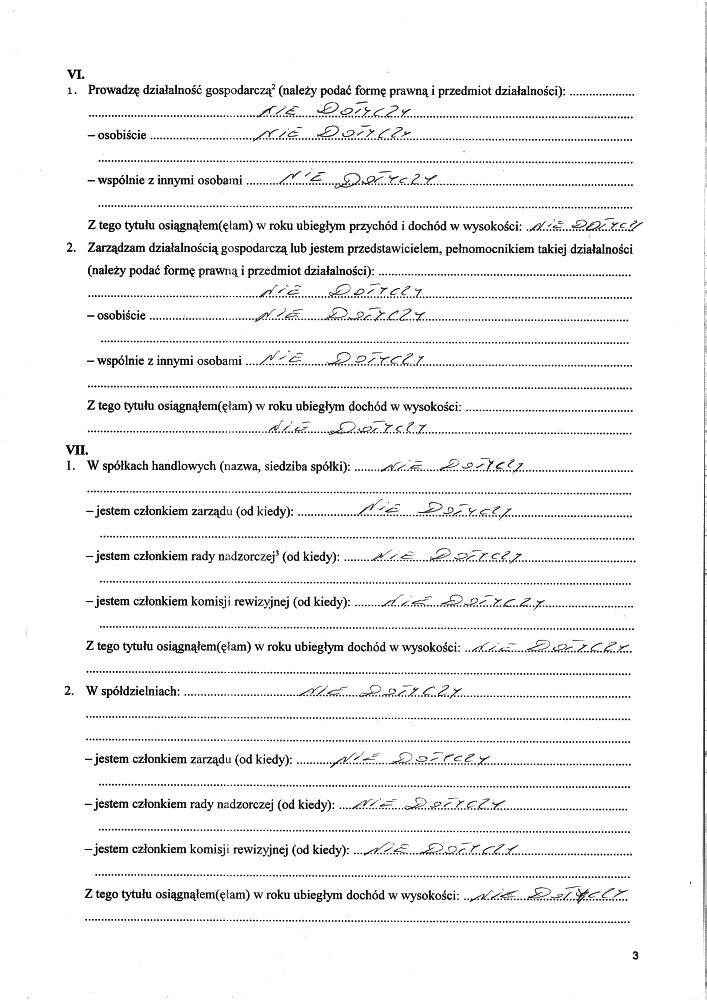 VI.
1. Prowadzę działalność gospodarczą² (należy podać formę prawną i przedmiot działalności): ....................
NIE DOTYCZY
– osobiście NIE DOTYCZY
– wspólnie z innymi osobami NIE DOTYCZY
Z tego tytułu osiągnąłem(ęłam) w roku ubiegłym przychód i dochód w wysokości: NIE DOTYCZY
2. Zarządzam działalnością gospodarczą lub jestem przedstawicielem, pełnomocnikiem takiej działalności
(należy podać formę prawną i przedmiot działalności): ....................
NIE DOTYCZY
– osobiście NIE DOTYCZY
– wspólnie z innymi osobami NIE DOTYCZY
Z tego tytułu osiągnąłem(ęłam) w roku ubiegłym dochód w wysokości: ....................
NIE DOTYCZY
VII.
1. W spółkach handlowych (nazwa, siedziba spółki): NIE DOTYCZY
– jestem członkiem zarządu (od kiedy): NIE DOTYCZY
– jestem członkiem rady nadzorczej³ (od kiedy): NIE DOTYCZY
– jestem członkiem komisji rewizyjnej (od kiedy): NIE DOTYCZY
Z tego tytułu osiągnąłem(ęłam) w roku ubiegłym dochód w wysokości: NIE DOTYCZY
2. W spółdzielniach: NIE DOTYCZY
– jestem członkiem zarządu (od kiedy): NIE DOTYCZY
– jestem członkiem rady nadzorczej (od kiedy): NIE DOTYCZY
– jestem członkiem komisji rewizyjnej (od kiedy): NIE DOTYCZY
Z tego tytułu osiągnąłem(ęłam) w roku ubiegłym dochód w wysokości: NIE DOTYCZY
3